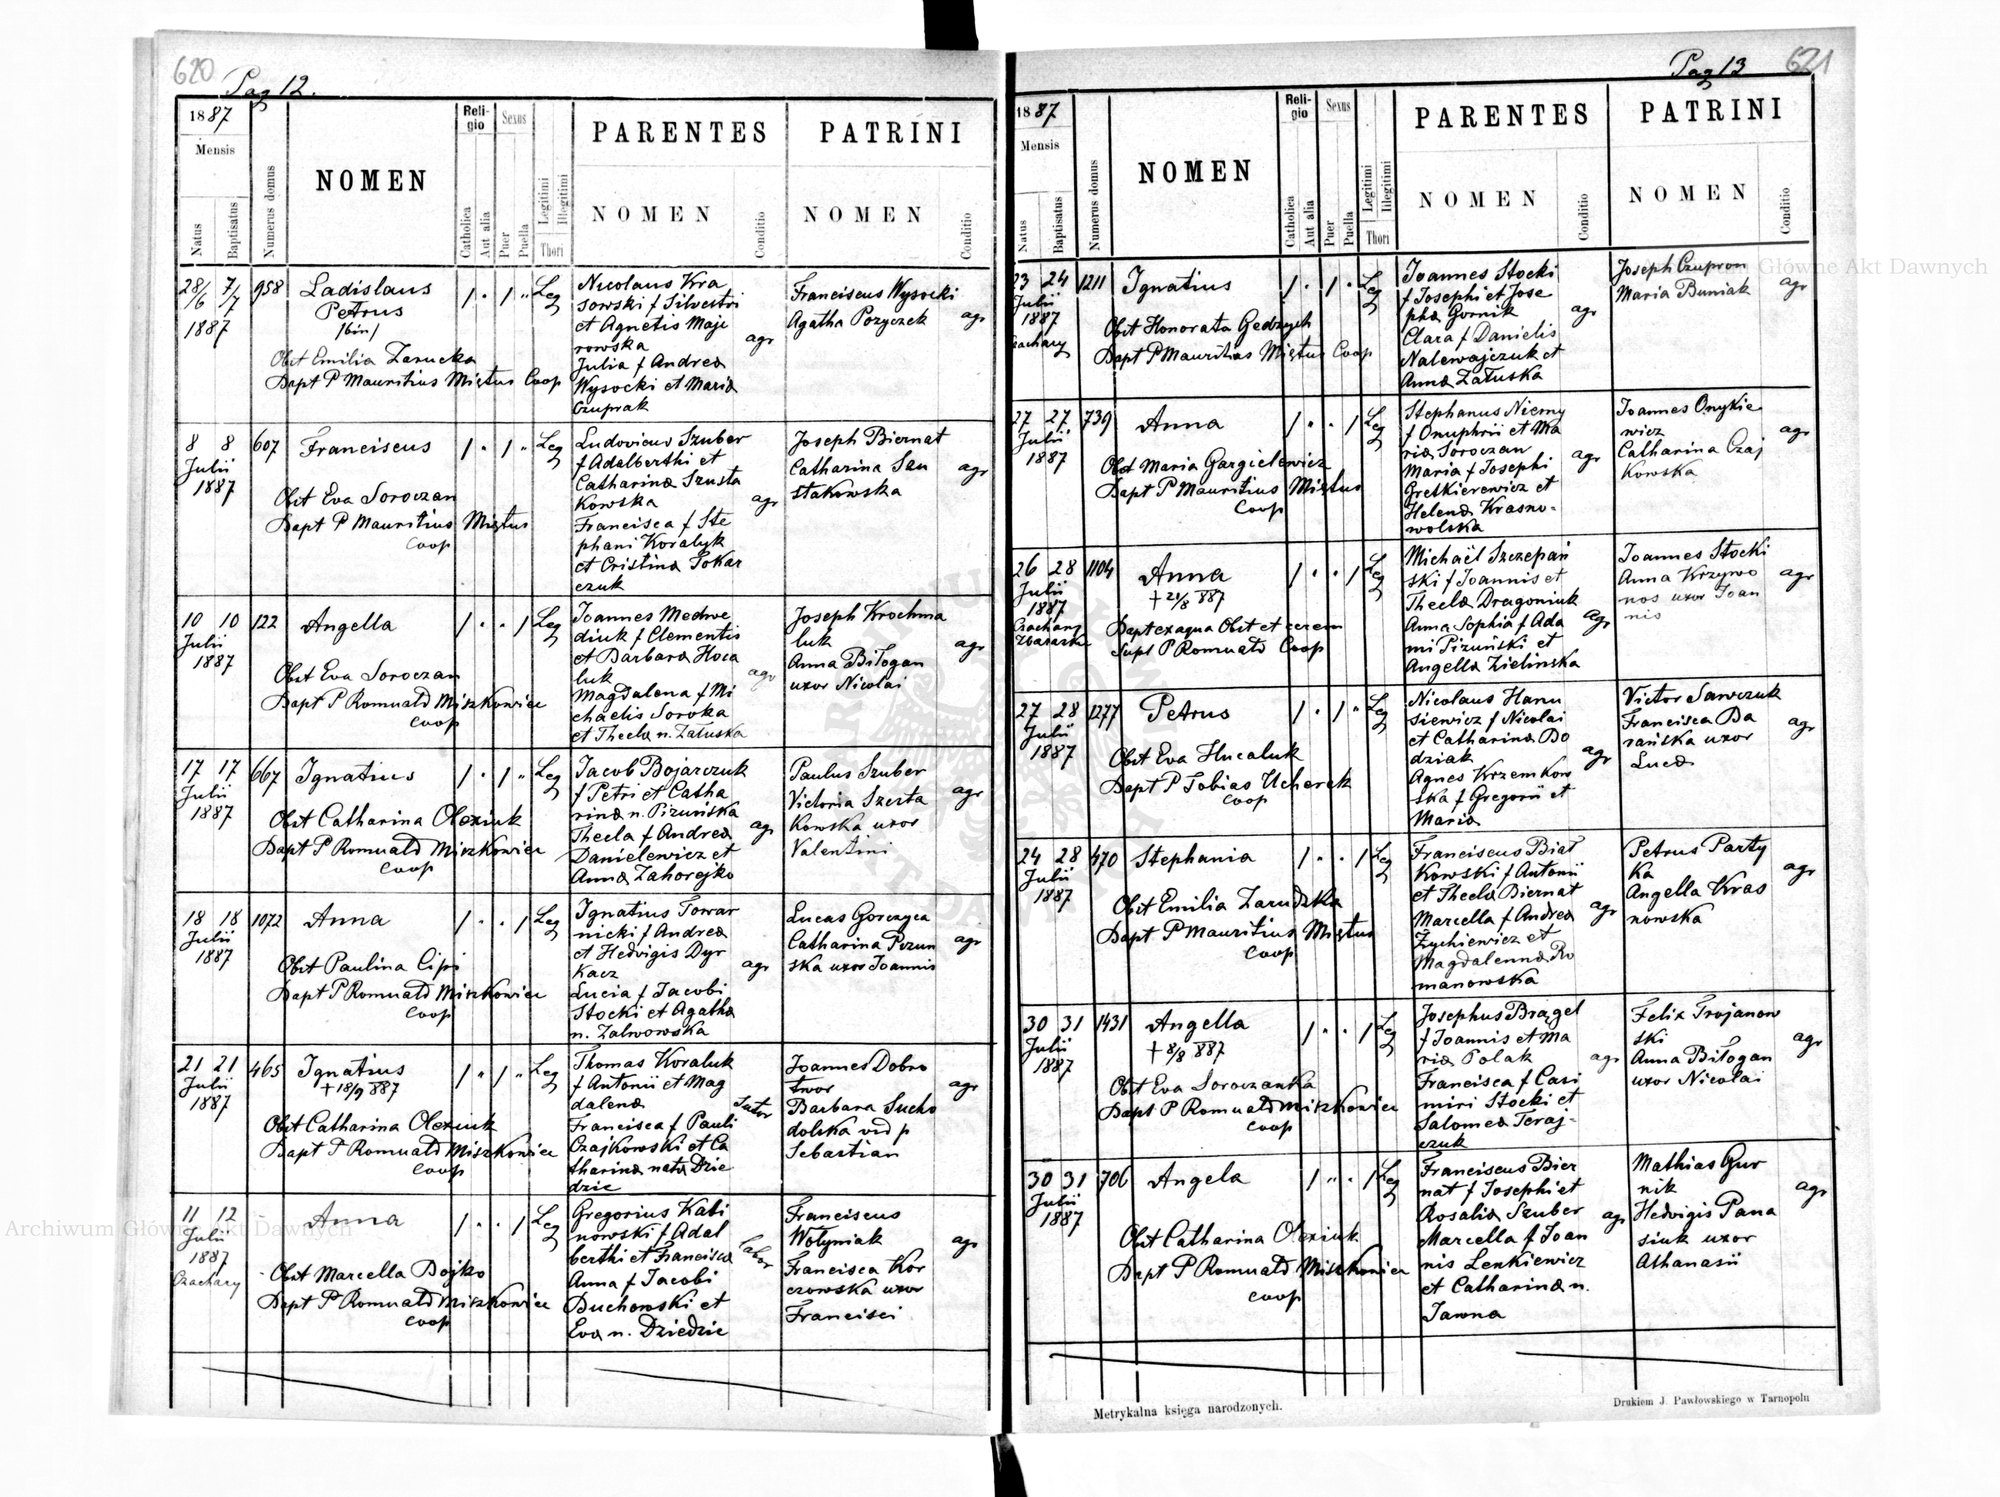 620
Pag 12.
1887
Mensis
Natus
Baptisatus
Numerus domus
NOMEN
Reli-
gio
Catholica
Aut alia
Sexus
Puer
Puella
Legitimi
Illegitimi
Thori
PARENTES
NOMEN
Conditio
PATRINI
NOMEN
Conditio
28/6 7/7 958 Ladislaus 1 " 1 " Leg
1887
Petrus
/bin/
Obst Emilia Zarucka
Bapt P Mauritius Miętus Coop
Nicolaus Kra
sowski f Silvestri
et Agnetis Maje
rowska
Julia f Andrea
Wysocki et Maria
Czuprak
agr
Franciscus Wysocki
Agatha Pozyczek
agr
8 8 607 Franciscus 1 " 1 " Leg
Julii
1887
Obst Eva Soroczan
Bapt P Mauritius Miętus
Coop
Ludovicus Szuber
f Adalberthi et
Catharina Szusta
Kowska
Francisca f Ste
phani Koralyk
et Cristina Tokar
czuk
agr
Joseph Biernat
Catharina Szu
stakowska
agr
10 10 122 Angella 1 " " 1 Leg
Julii
1887
Obst Eva Soroczan
Bapt P Romuald Miszkowicz
Coop
Joannes Medwe
diuk f Clementis
et Barbara Hoca
luk
Magdalena f Mi
chaelis Soroka
et Thecla n. Załuska
agr
Joseph Krochma
luk
Anna Biłogan
uxor Nicolai
agr
17 17 667 Ignatius 1 " 1 " Leg
Julii
1887
Obst Catharina Olexiuk
Bapt P Romuald Miszkowicz
Coop
Jacob Bojarczuk
f Petri et Catha
rina n. Pizuńska
Thecla f Andrea
Danielewicz et
Anna Zahorejko
agr
Paulus Szuber
Victoria Szesta
Kowska uxor
Valentini
agr
18 18 1072 Anna 1 " " 1 Leg
Julii
1887
Obst Paulina Cipi
Bapt P Romuald Miszkowicz
Coop
Ignatius Towar
nicki f Andrea
et Hedvigis Dyr
Kacz
Lucia f Jacobi
Stocki et Agatha
n. Zalwowska
agr
Lucas Gorczyca
Catharina Pizun
ska uxor Joannis
agr
21 21 465 Ignatius 1 " 1 " Leg
Julii
1887
+ 18/9 887
Obst Catharina Olexiuk
Bapt P Romuald Miszkowicz
Coop
Thomas Koraluk
f Antonii et Mag
dalena
Francisca f Pauli
Czajkowski et Ca
tharina nata Dzie
dzic
Sutor
Joannes Dobro
twor
Barbara Sucho
dolska vid p
Sebastian
agr
11 12 - Anna 1 " " 1 Leg
Julii
1887
Czachary
Obst Marcella Bojko
Bapt P Romuald Miszkowicz
Coop
Gregorius Kali
nowski f Adal
berthi et Francisca
Anna f Jacobi
Duchowski et
Eva n. Dziedzic
Labor
Franciscus
Wołyniak
Francisca Kor
czowska uxor
Francisci
agr
621
Pag 13
1887
Mensis
Natus
Baptisatus
Numerus domus
NOMEN
Reli-
gio
Catholica
Aut alia
Sexus
Puer
Puella
Legitimi
Illegitimi
Thori
PARENTES
NOMEN
Conditio
PATRINI
NOMEN
Conditio
23 24 1211 Ignatius 1 " 1 " Leg
Julii
1887
Czachary
Obst Honorata Gedzych
Bapt P Mauritius Miętus Coop
Joannes Stocki
f Josephi et Jose
pha Gornik
Clara f Danielis
Nalewajczuk et
Anna Załuska
agr
Joseph Czupron
Maria Buniak
agr
27 27 739 Anna 1 " " 1 Leg
Julii
1887
Obst Maria Gargielewicz
Bapt P Mauritius Miętus
Coop
Stephanus Niemy
f Onuphrii et Ma
ria Soroczan
Maria f Josephi
Gretkierewicz et
Helena Krasno-
wolska
agr
Joannes Onykie
wicz
Catharina Czaj
Kowska
agr
26 28 1104 Anna 1 " " 1 Leg
Julii
1887
Czachary
Zbarazki
+ 21/8 887
Bapt ex aqua Obst et cerem
Supl P Romuald Coop
Michaël Szczepań
ski f Joannis et
Thecla Dragoniuk
Anna Sophia f Ada
mi Pizuński et
Angella Zielinska
agr
Joannes Stocki
Anna Krzywo
nos uxor Joan
nis
agr
27 28 1277 Petrus 1 " 1 " Leg
Julii
1887
Obst Eva Hucaluk
Bapt P Tobias Ucherek
Coop
Nicolaus Hanu
siewicz f Nicolai
et Catharina Bo
dziak
Agnes Krzemkow
ska f Gregorii et
Maria
agr
Victor Sawczuk
Francisca Ba
rańska uxor
Luca
agr
24 28 470 Stephania 1 " " 1 Leg
Julii
1887
Obst Emilia Zarudzka
Bapt P Mauritius Miętus
Coop
Franciscus Biał
Kowski f Antonii
et Thecla Biernat
Marcella f Andrea
Żychiewicz et
Magdalenna Ro
manowska
agr
Petrus Party
Ka
Angella Kras
nowska
agr
30 31 1431 Angella 1 " " 1 Leg
Julii
1887
+ 8/8 887
Obst Eva Soroczanka
Bapt P Romuald Miszkowicz
Coop
Josephus Brągel
f Joannis et Ma
ria Polak
Francisca f Casi
miri Stocki et
Salomea Teraj-
czuk
agr
Felix Trojanow
ski
Anna Biłogan
uxor Nicolai
agr
30 31 706 Angela 1 " " 1 Leg
Julii
1887
Obst Catharina Olexiuk
Bapt P Romuald Miszkowicz
Coop
Franciscus Bier
nat f Josephi et
Rosalia Szuber
Marcella f Joan
nis Lenkiewicz
et Catharina n.
Jawna
agr
Mathias Gur
nik
Hedvigis Pana
siuk uxor
Athanasii
agr
Metrykalna księga narodzonych.
Drukiem J. Pawłowskiego w Tarnopolu
Archiwum Główne Akt Dawnych
Archiwum Główne Akt Dawnych